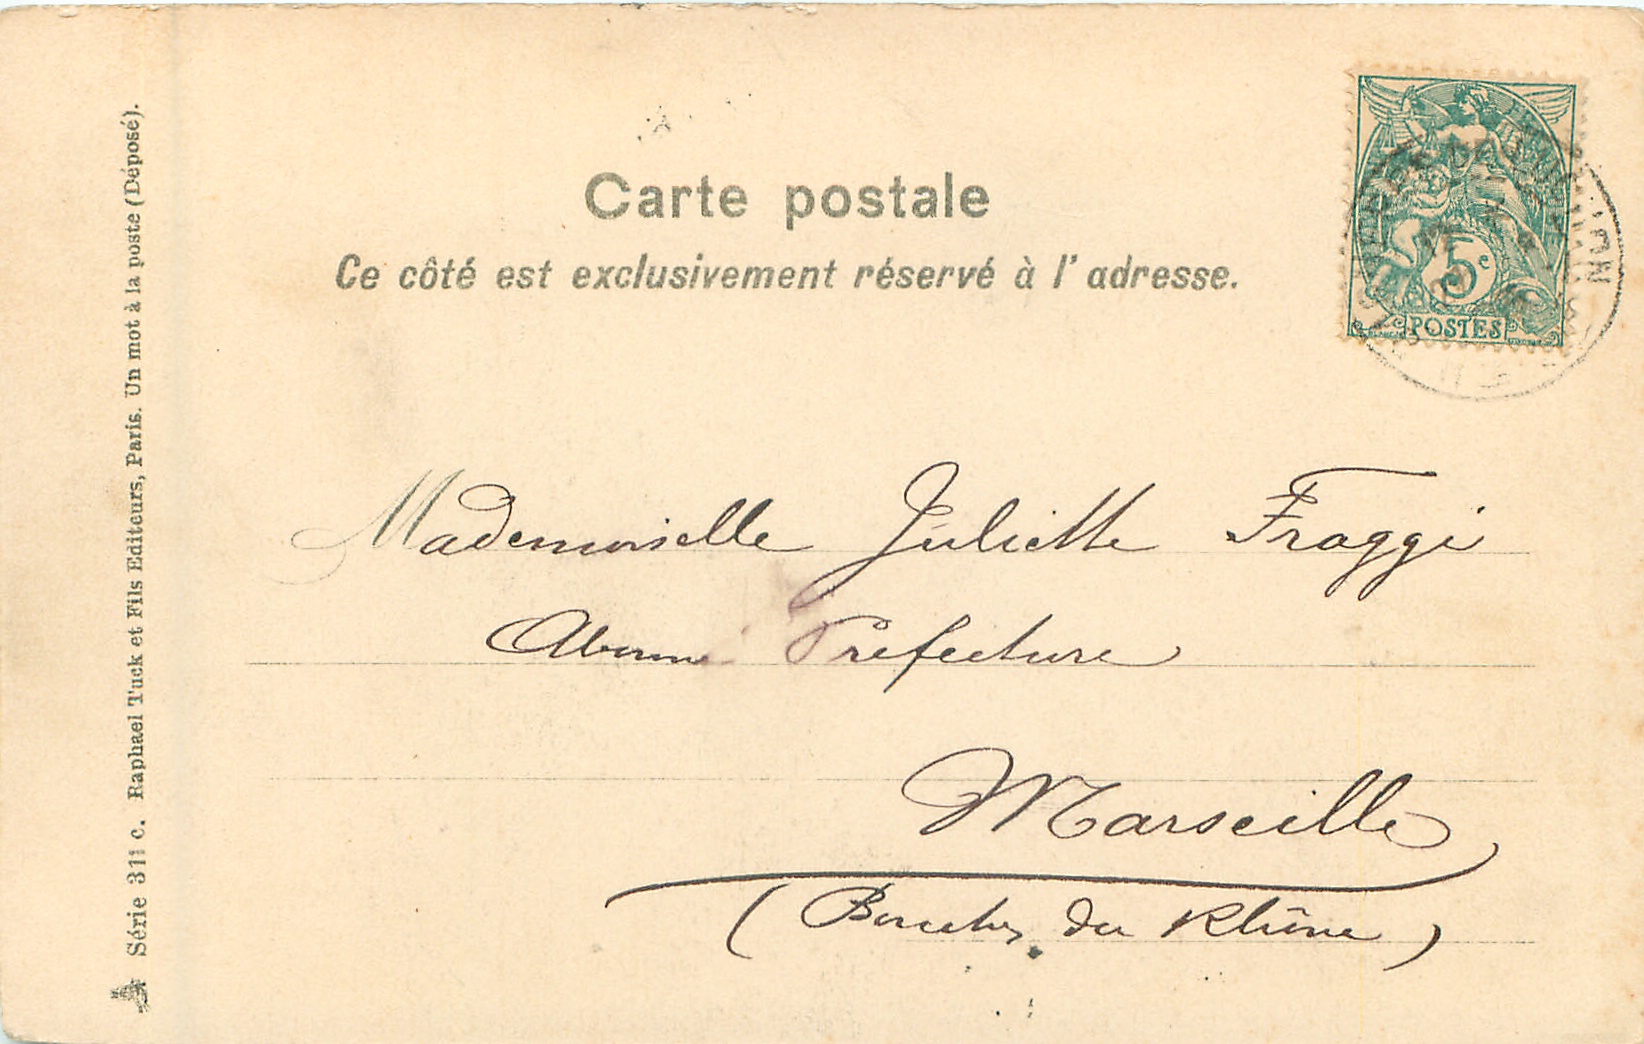 Carte postale
Ce côté est exclusivement réservé à l'adresse.
5c
POSTES
Mademoiselle Juliette Fraggi
Abonné Préfecture
Marseille
(Bouches du Rhône)
Série 311 c. Raphael Tuck et Fils Editeurs, Paris. Un mot à la poste (Déposé).